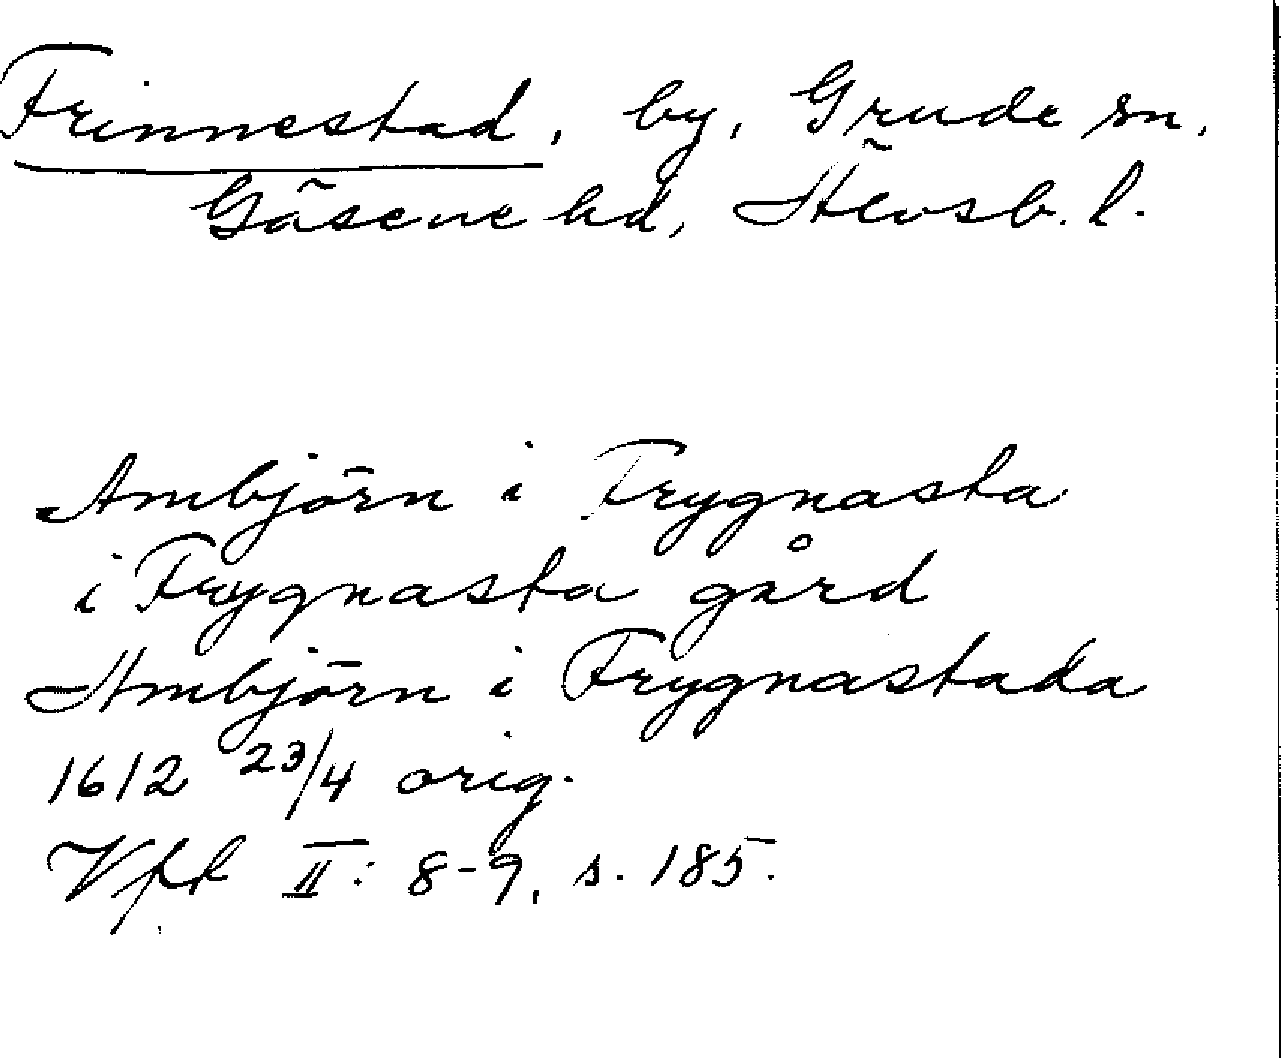 Frinnestad, by, Grude sn,
Gäsene hd, Älvsb. l.
Ambjörn i Frygnasta
i Frygnasta gård
Ambjörn i Frygnastada
1612 23/4 orig.
Vff II: 8-9, s. 185.